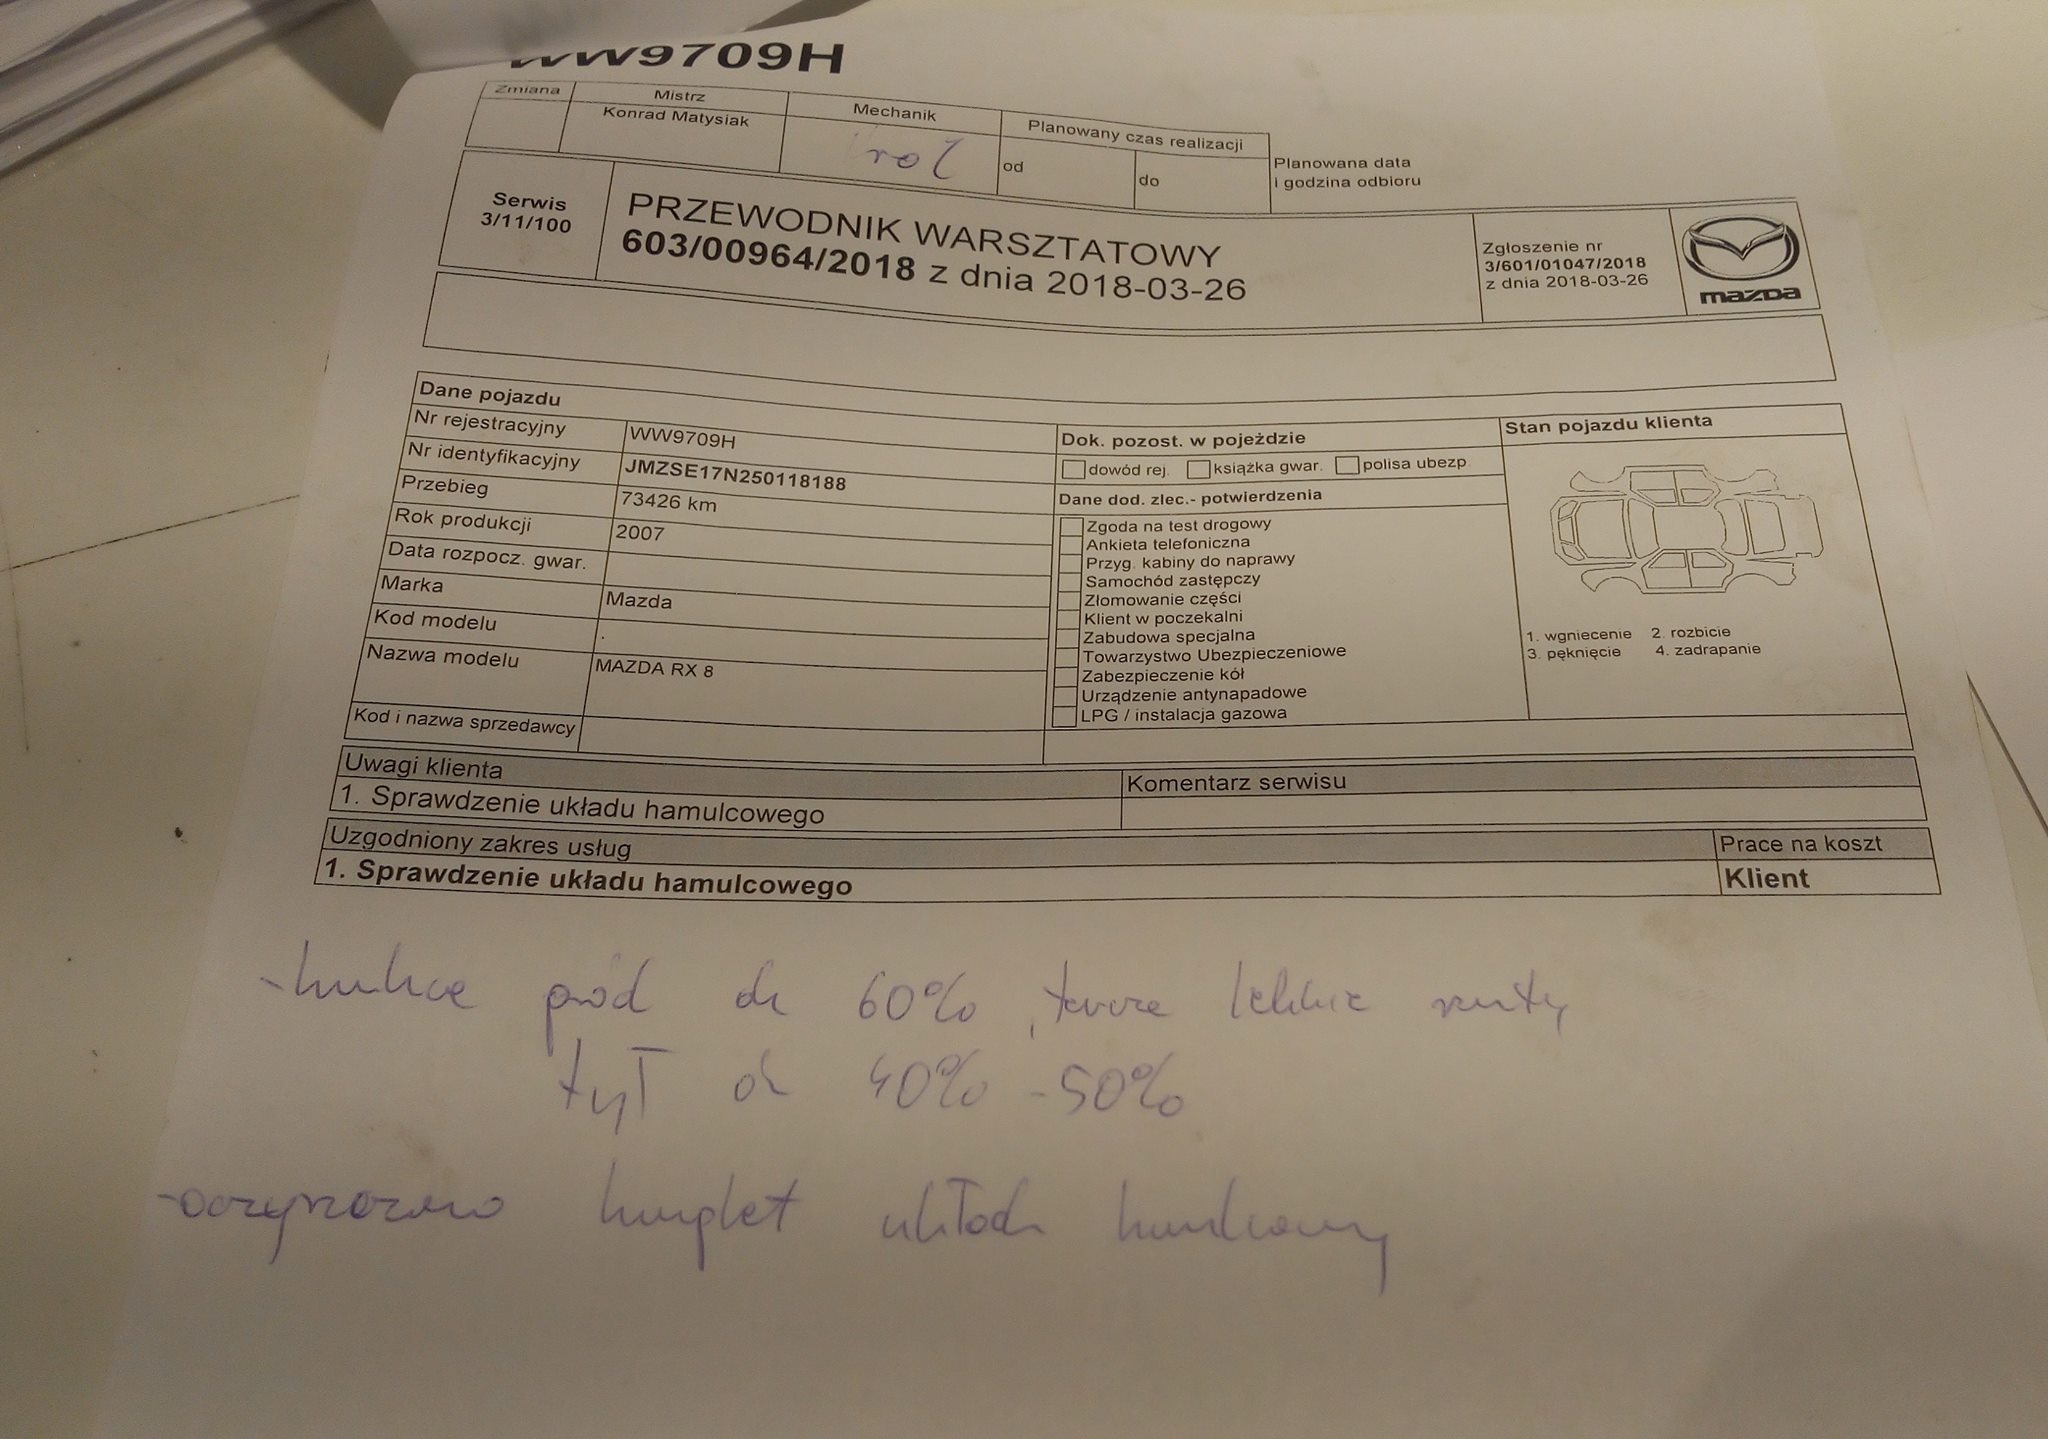 WW9709H
Zmiana Mistrz Mechanik Planowany czas realizacji
Konrad Matysiak od do
Planowana data
i godzina odbioru
Serwis
3/11/100
PRZEWODNIK WARSZTATOWY
603/00964/2018 z dnia 2018-03-26
Zgłoszenie nr
3/601/01047/2018
z dnia 2018-03-26
mazda
Dane pojazdu
Nr rejestracyjny WW9709H
Nr identyfikacyjny JMZSE17N250118188
Przebieg 73426 km
Rok produkcji 2007
Data rozpocz. gwar.
Marka Mazda
Kod modelu .
Nazwa modelu MAZDA RX 8
Kod i nazwa sprzedawcy
Dok. pozost. w pojeździe
dowód rej. książka gwar. polisa ubezp
Dane dod. zlec.- potwierdzenia
Zgoda na test drogowy
Ankieta telefoniczna
Przyg. kabiny do naprawy
Samochód zastępczy
Złomowanie części
Klient w poczekalni
Zabudowa specjalna
Towarzystwo Ubezpieczeniowe
Zabezpieczenie kół
Urządzenie antynapadowe
LPG / instalacja gazowa
Stan pojazdu klienta
1. wgniecenie 2. rozbicie
3. pęknięcie 4. zadrapanie
Uwagi klienta Komentarz serwisu
1. Sprawdzenie układu hamulcowego
Uzgodniony zakres usług Prace na koszt
1. Sprawdzenie układu hamulcowego Klient
przód ok 60%, tarcze lekkie ranty
tył ok 40% - 50%
- komplet układ hamulcowy